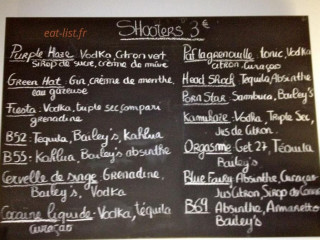 eat-list.fr
SHOOTERS 3€
Purple Haze Vodka, Citron vert
sirop de sucre, crème de mûre
Green Hat: Gin, crème de menthe,
eau gazeuse
Fiesta: Vodka, triple sec, campari
grenadine
B52: Tequila, Bailey's, Kahlua
B55: Kahlua, Bailey's absinthe
Cervelle de singe Grenadine,
Bailey's, Vodka
Cocaine liquide: Vodka, téquila
Curaçao
Pat la grenouille: tonic, Vodka
citron, Curaçao
Head Shock Tequila, Absinthe
Porn Star: Sambuca, Bailey's
Kamikaze: Vodka, Triple Sec,
Jus de Citron.
Orgasme Get 27, Téquila
Bailey's
Blue Fairy Absinthe, Curaçao
Jus Citron Sirop de Canne
B69 Absinthe, Amaretto
Bailey's